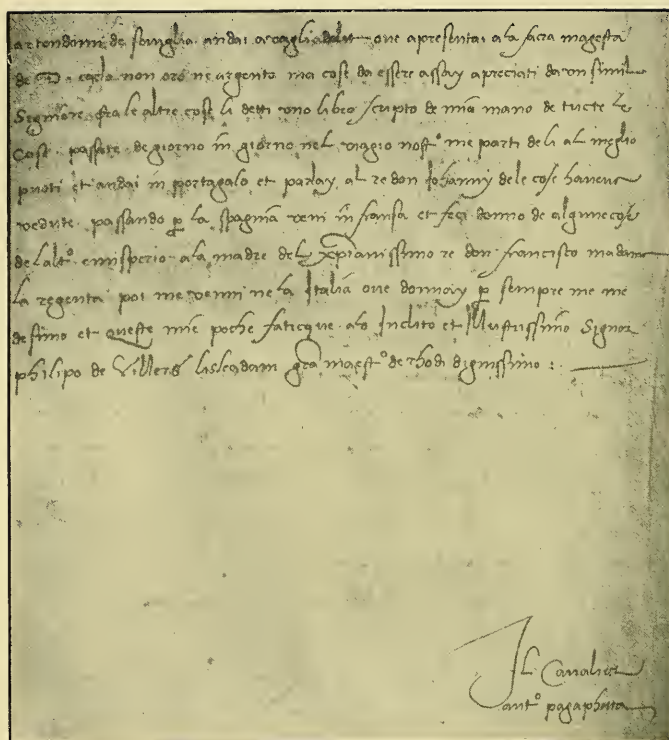 artendomi de seviglia andai a vagliadolit oue apresentai a la sacra magesta
de D. carlo non oro ne argento ma cose da essere assay apreciati da vn simil
Signiore. fra le altre cose li detti vno libro scripto de mia mano de tucte le
Cose passate de giorno in giorno nel viagio nostº me parti de li al meglio
puoti et andai in portagalo et parlay al re don Iohanny dele cose haueua
vedute. passando p la spagnia veni in fransa et feci donno de algune cose
de laltº emisperio a la madre del xp̄ianissimo re don francisco madama
la regenta poi me venni ne la Italia oue donnay p sempre me me
desimo et queste mie poche faticque alo Inclito et Illustrissimo Signor
philipo de Villers lisleadam grā maestº de rhodi dignissimo :
Il Cavalier
antº pagaphetta